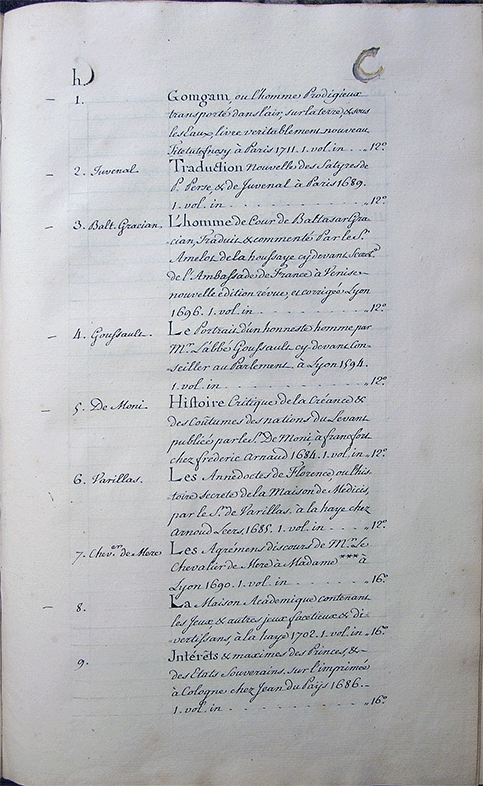 h)
C
1. Gomgam, ou l'homme Prodigieux
transporté dans l'air, sur la terre, & sous
les Eaux, livre veritablement nouveau
à Paris 1711. 1. vol. in . . 12.º
2. Juvenal. Traduction Nouvelle des Satyres de
P. Perse, & de Juvenal à Paris 1689.
1. vol. in . . . . . . 12.º
3. Balt. Gracian. L'homme de Cour de Baltasar Gra
cian, Traduit & commenté Par le S.r
Amelot de la houssaye cy devant Secret.re
de l'Ambassade de France à Venise
nouvelle édition révue, et corrigée Lyon
1696. 1. vol. in . . . . . 12.º
4. Goussault. Le Portrait d'un honneste homme par
M.r L'abbé Goussault cy devant Con
seiller au Parlement à Lyon 1594.
1. vol. in . . . . . . 12.º
5. De Moni. Histoire Critique de la Créance &
des Coûtumes des nations du Levant
publiée par le S.r De Moni, à francfort
chez frederic Arnaud 1684. 1. vol. in 12.º
6. Varillas. Les Annedoctes de Florence, ou l'his
toire secrete de la Maison de Médicis,
par le S.r de Varillas. à la haye chez
Arnoud Leers, 1685. 1. vol. in . . . 12.º
7. Chev.er de Mere Les Agrémens discours de M.r Le
Chevalier de Meré à Madame *** à
Lyon 1690. 1. vol. in . . . . 16.º
8. La Maison Academique contenant
les Jeux, & autres jeux facetieux & di
vertissans, à la haye 1702. 1. vol. in 16.º
9. Intérêts & maximes des Princes, &
des Etats Souverains. sur l'imprimée
à Cologne chez Jean du Païs 1686.
1. vol. in . . . . . . 16.º